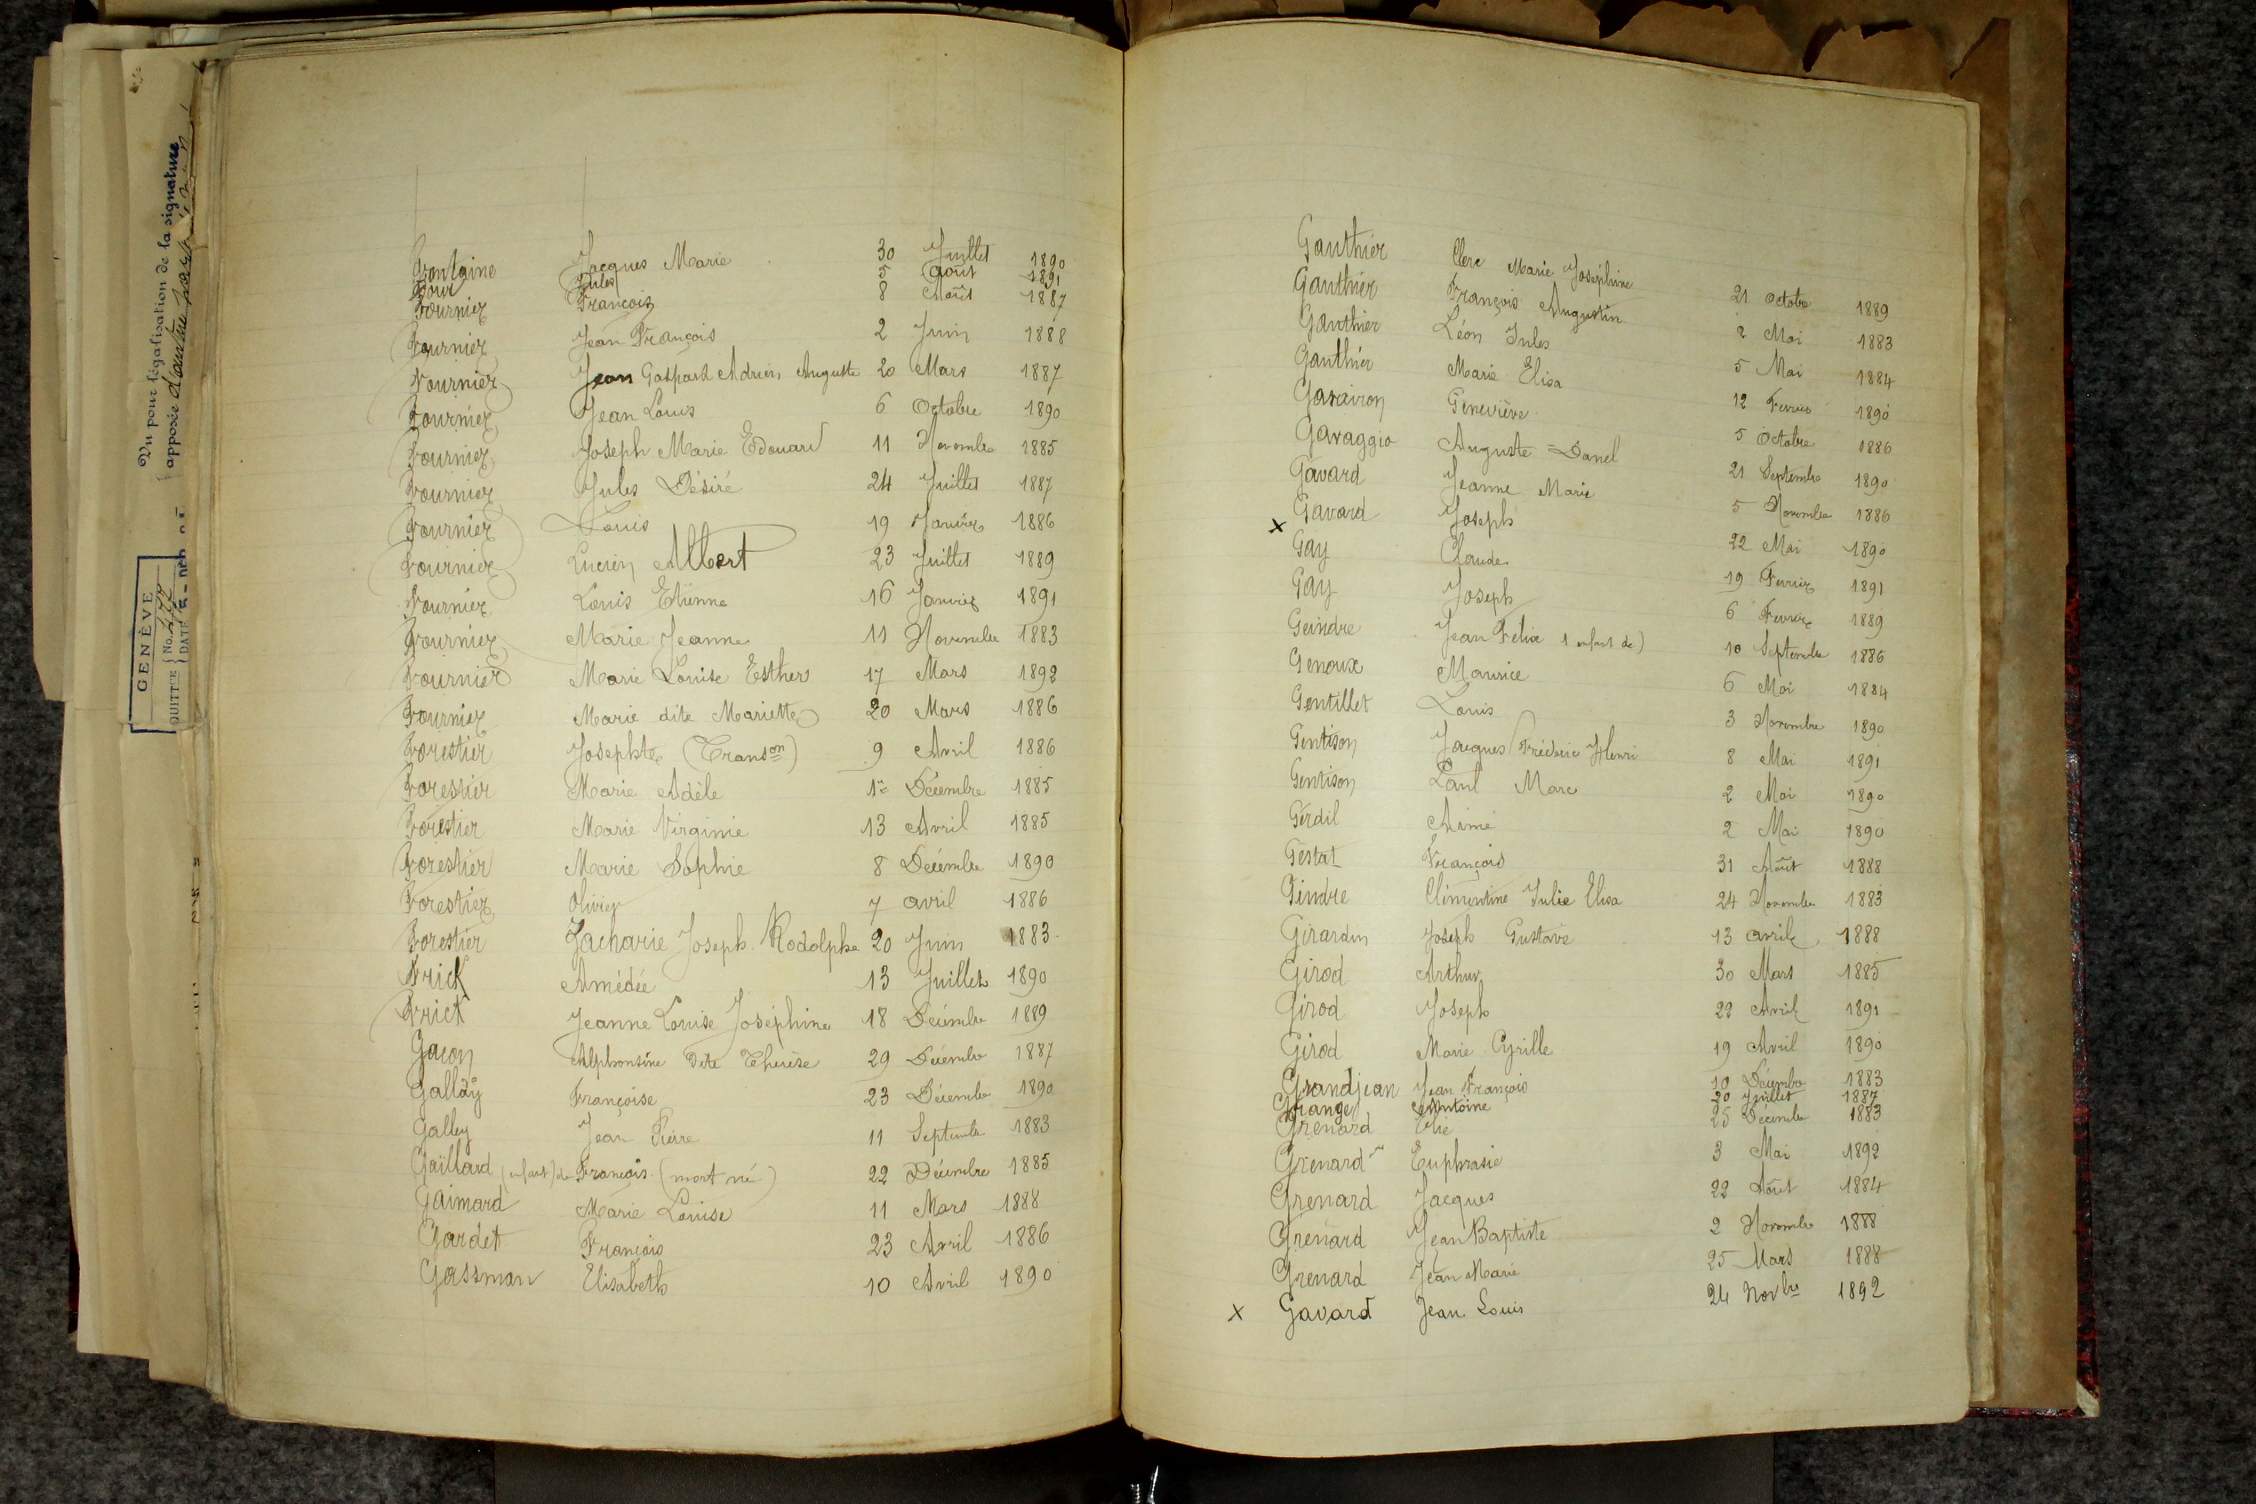 Vu pour légalisation de la signature
apposée d'autre part
GENÈVE
QUITTCE No. 277
DATE
Fontaine Jacques Marie 30 Juillet 1890
Four Jules 5 août 1891
Fournier François 8 Août 1887
Fournier Jean François 2 Juin 1888
Fournier Jean Gaspard Adrien Auguste 20 Mars 1887
Fournier Jean Louis 6 Octobre 1890
Fournier Joseph Marie Edouard 11 Novembre 1885
Fournier Jules Désiré 24 Juillet 1887
Fournier Louis 19 Janvier 1886
Fournier Lucien Albert 23 Juillet 1889
Fournier Louis Etienne 16 Janvier 1891
Fournier Marie Jeanne 11 Novembre 1883
Fournier Marie Louise Esther 17 Mars 1892
Fournier Marie dite Mariette 20 Mars 1886
Forestier Josephte (Transon) 9 Avril 1886
Forestier Marie Adèle 1er Décembre 1885
Forestier Marie Virginie 13 Avril 1885
Forestier Marie Sophie 8 Décembre 1890
Forestier Olivier 7 avril 1886
Forestier Zacharie Joseph Rodolphe 20 Juin 1883
Frick Amédée 13 Juillet 1890
Frict Jeanne Louise Joséphine 18 Décembre 1889
Gacon Alphonsine dite Thérèse 29 Décembre 1887
Gallay Françoise 23 Décembre 1890
Galley Jean Pierre 11 Septembre 1883
Gaillard (enfant) de François (mort né) 22 Décembre 1885
Gaimard Marie Louise 11 Mars 1888
Gardet François 23 Avril 1886
Gassman Elisabeth 10 Avril 1890
Gauthier Clerc Marie Joséphine 21 Octobre 1889
Gauthier François Augustin 2 Mai 1883
Gauthier Léon Jules 5 Mai 1884
Gauthier Marie Elisa 12 Fevrier 1890
Gavairon Geneviève 5 Octobre 1886
Gavaggio Auguste = Danel 21 Septembre 1890
Gavard Jeanne Marie 5 Novembre 1886
x Gavard Joseph 22 Mai 1890
Gay Claude 19 Fevrier 1891
Gay Joseph 6 Fevrier 1889
Geindre Jean Felix 1 enfant de) 10 Septembre 1886
Genoux Maurice 6 Mai 1884
Gentillet Louis 3 Novembre 1890
Gentison Jacques Frédéric Henri 8 Mai 1891
Gentison Paul Marc 2 Mai 1890
Gerdil Aimé 2 Mai 1890
Gestat François 31 Août 1888
Gindre Clémentine Julie Elisa 24 Novembre 1883
Girardin Joseph Gustave 13 avril 1888
Girod Arthur 30 Mars 1885
Girod Joseph 22 Avril 1891
Girod Marie Cyrille 19 Avril 1890
Grandjean Jean François 10 Décembre 1883
Grange Antoine 20 Juillet 1887
Grenard Elie 25 Décembre 1883
Grenard Euphrasie 3 Mai 1892
Grenard Jacques 22 Août 1884
Grenard Jean Baptiste 2 Novembre 1888
Grenard Jean Marie 25 Mars 1888
x Gavard Jean Louis 24 Novbre 1892